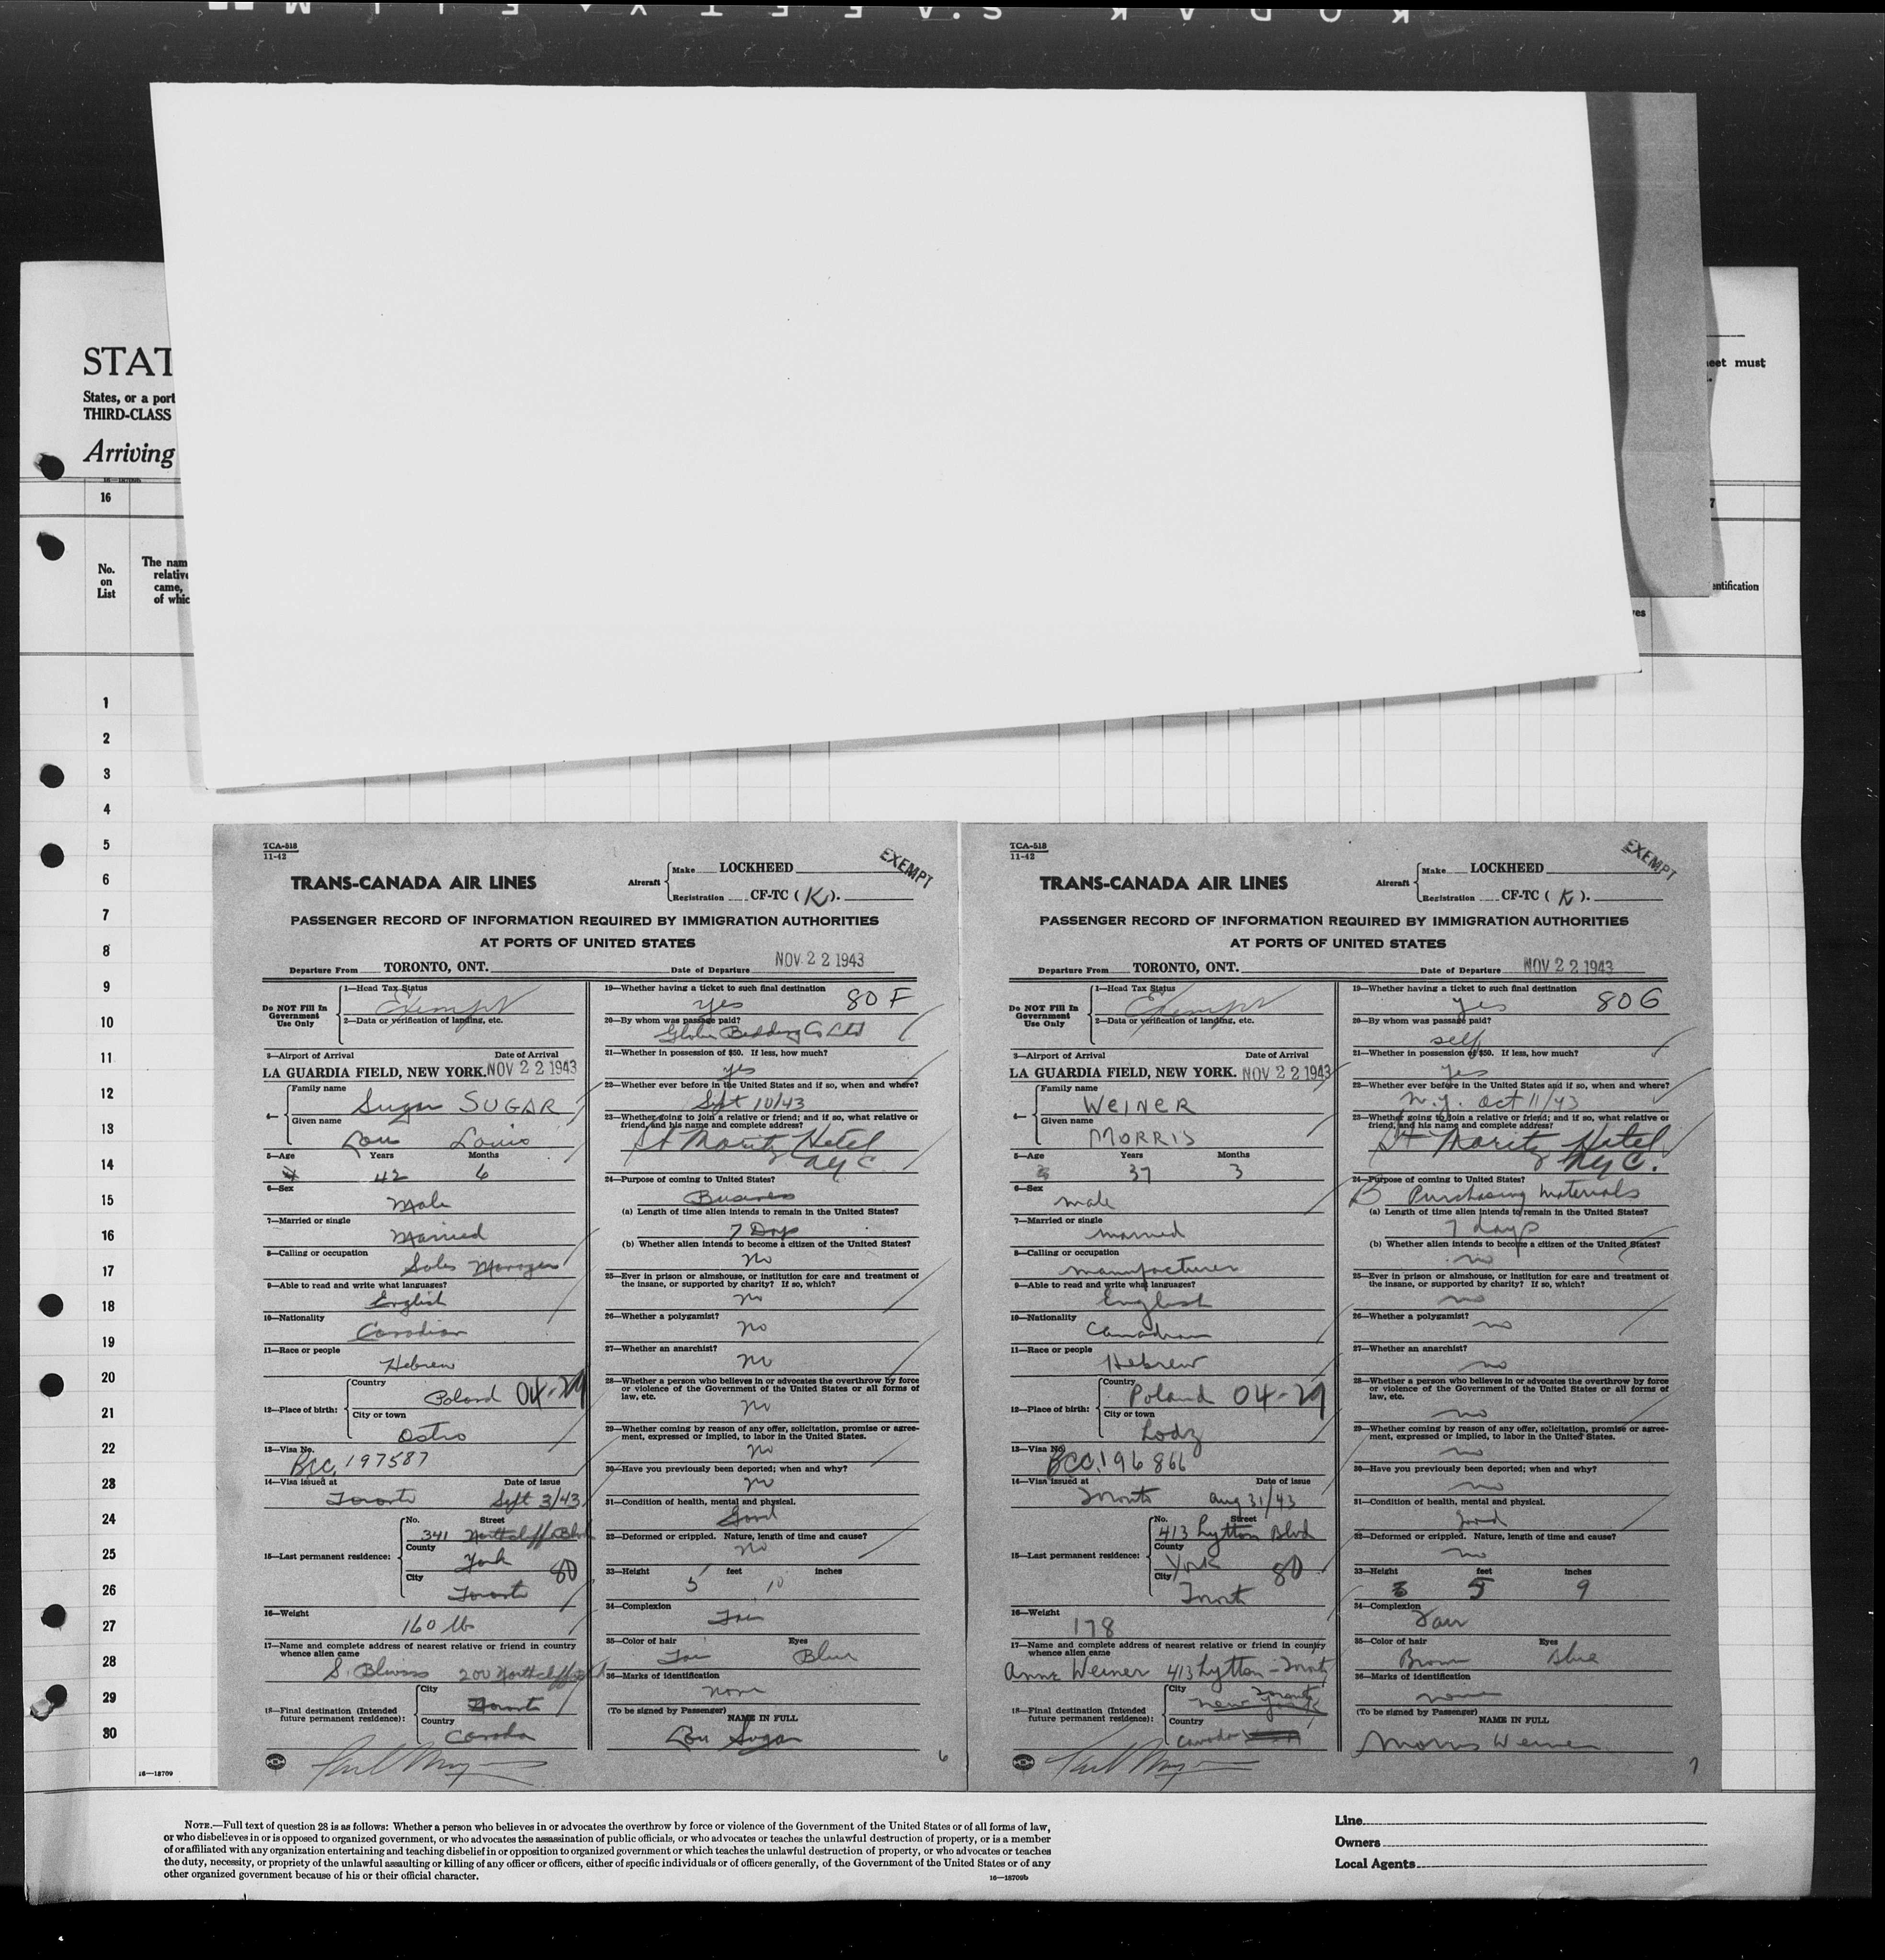 KODAK SAFETY FILM
STAT
States, or a port
THIRD-CLASS
Arriving
16
No.
on
List
The nam
relative
came,
of whic
eet must
7
entification
es
1
2
3
4
5
6
7
8
9
10
11
12
13
14
15
16
17
18
19
20
21
22
23
24
25
26
27
28
29
30
16—18709
TCA-518
11-42
EXEMPT
TRANS-CANADA AIR LINES
Aircraft
Make LOCKHEED
Registration CF-TC ( K ).
PASSENGER RECORD OF INFORMATION REQUIRED BY IMMIGRATION AUTHORITIES
AT PORTS OF UNITED STATES
Departure From TORONTO, ONT. Date of Departure NOV 22 1943
Do NOT Fill In
Government
Use Only
1—Head Tax Status
Exempt
2—Data or verification of landing, etc.
3—Airport of Arrival Date of Arrival
LA GUARDIA FIELD, NEW YORK. NOV 22 1943
4—
Family name
Sugar SUGAR
Given name
Lou Louis
5—Age Years Months
42 6
6—Sex
Male
7—Married or single
Married
8—Calling or occupation
Sales Manager
9—Able to read and write what languages?
English
10—Nationality
Canadian
11—Race or people
Hebrew
12—Place of birth:
Country
Poland 04-29
City or town
Ostro
13—Visa No.
BCC. 197587
14—Visa issued at Date of issue
Toronto Sept 3/43
15—Last permanent residence:
No. Street
341 Northcliffe Blvd
County
York
City 80
Toronto
16—Weight
160 lbs
17—Name and complete address of nearest relative or friend in country
whence alien came
S. 200 Northcliffe
18—Final destination (Intended
future permanent residence):
City
Toronto
Country
Canada
19—Whether having a ticket to such final destination
yes 80 F
20—By whom was passage paid?
Globe Bedding Co Ltd
21—Whether in possession of $50. If less, how much?
yes
22—Whether ever before in the United States and if so, when and where?
Sept 10/43
23—Whether going to join a relative or friend; and if so, what relative or
friend, and his name and complete address?
St Moritz Hotel
NYC.
24—Purpose of coming to United States?
Business
(a) Length of time alien intends to remain in the United States?
7 Days
(b) Whether alien intends to become a citizen of the United States?
No
25—Ever in prison or almshouse, or institution for care and treatment of
the insane, or supported by charity? If so, which?
No
26—Whether a polygamist?
No
27—Whether an anarchist?
No
28—Whether a person who believes in or advocates the overthrow by force
or violence of the Government of the United States or all forms of
law, etc.
No
29—Whether coming by reason of any offer, solicitation, promise or agree-
ment, expressed or implied, to labor in the United States.
No
30—Have you previously been deported; when and why?
No
31—Condition of health, mental and physical.
Good
32—Deformed or crippled. Nature, length of time and cause?
No
33—Height feet inches
5 10
34—Complexion
Fair
35—Color of hair Eyes
Fair Blue
36—Marks of identification
None
(To be signed by Passenger)
NAME IN FULL
Lou Sugar
6
TCA-518
11-42
EXEMPT
TRANS-CANADA AIR LINES
Aircraft
Make LOCKHEED
Registration CF-TC ( K ).
PASSENGER RECORD OF INFORMATION REQUIRED BY IMMIGRATION AUTHORITIES
AT PORTS OF UNITED STATES
Departure From TORONTO, ONT. Date of Departure NOV 22 1943
Do NOT Fill In
Government
Use Only
1—Head Tax Status
Exempt
2—Data or verification of landing, etc.
3—Airport of Arrival Date of Arrival
LA GUARDIA FIELD, NEW YORK. NOV 22 1943
4—
Family name
WEINER
Given name
MORRIS
5—Age Years Months
37 3
6—Sex
male
7—Married or single
married
8—Calling or occupation
manufacturer
9—Able to read and write what languages?
English
10—Nationality
Canadian
11—Race or people
Hebrew
12—Place of birth:
Country
Poland 04-29
City or town
Lodz
13—Visa No.
BCC. 196866
14—Visa issued at Date of issue
Toronto Aug 31/43
15—Last permanent residence:
No. Street
413 Lytton Blvd
County
York
City 80
Toronto
16—Weight
178
17—Name and complete address of nearest relative or friend in country
whence alien came
Anne Weiner 413 Lytton - Toronto
18—Final destination (Intended
future permanent residence):
City Toronto
New York
Country
Canada
19—Whether having a ticket to such final destination
yes 80G
20—By whom was passage paid?
self
21—Whether in possession of $50. If less, how much?
yes
22—Whether ever before in the United States and if so, when and where?
N.Y. Oct 11/43
23—Whether going to join a relative or friend; and if so, what relative or
friend, and his name and complete address?
St Moritz Hotel
NYC.
24—Purpose of coming to United States?
B Purchasing Materials
(a) Length of time alien intends to remain in the United States?
7 days
(b) Whether alien intends to become a citizen of the United States?
no
25—Ever in prison or almshouse, or institution for care and treatment of
the insane, or supported by charity? If so, which?
no
26—Whether a polygamist?
no
27—Whether an anarchist?
no
28—Whether a person who believes in or advocates the overthrow by force
or violence of the Government of the United States or all forms of
law, etc.
no
29—Whether coming by reason of any offer, solicitation, promise or agree-
ment, expressed or implied, to labor in the United States.
no
30—Have you previously been deported; when and why?
no
31—Condition of health, mental and physical.
good
32—Deformed or crippled. Nature, length of time and cause?
no
33—Height feet inches
5 9
34—Complexion
Fair
35—Color of hair Eyes
Brown blue
36—Marks of identification
none
(To be signed by Passenger)
NAME IN FULL
Morris Weiner
7
NOTE.—Full text of question 28 is as follows: Whether a person who believes in or advocates the overthrow by force or violence of the Government of the United States or of all forms of law,
or who disbelieves in or is opposed to organized government, or who advocates the assassination of public officials, or who advocates or teaches the unlawful destruction of property, or is a member
of or affiliated with any organization entertaining and teaching disbelief in or opposition to organized government or which teaches the unlawful destruction of property, or who advocates or teaches
the duty, necessity, or propriety of the unlawful assaulting or killing of any officer or officers, either of specific individuals or of officers generally, of the Government of the United States or of any
other organized government because of his or their official character.
16—18709b
Line
Owners
Local Agents